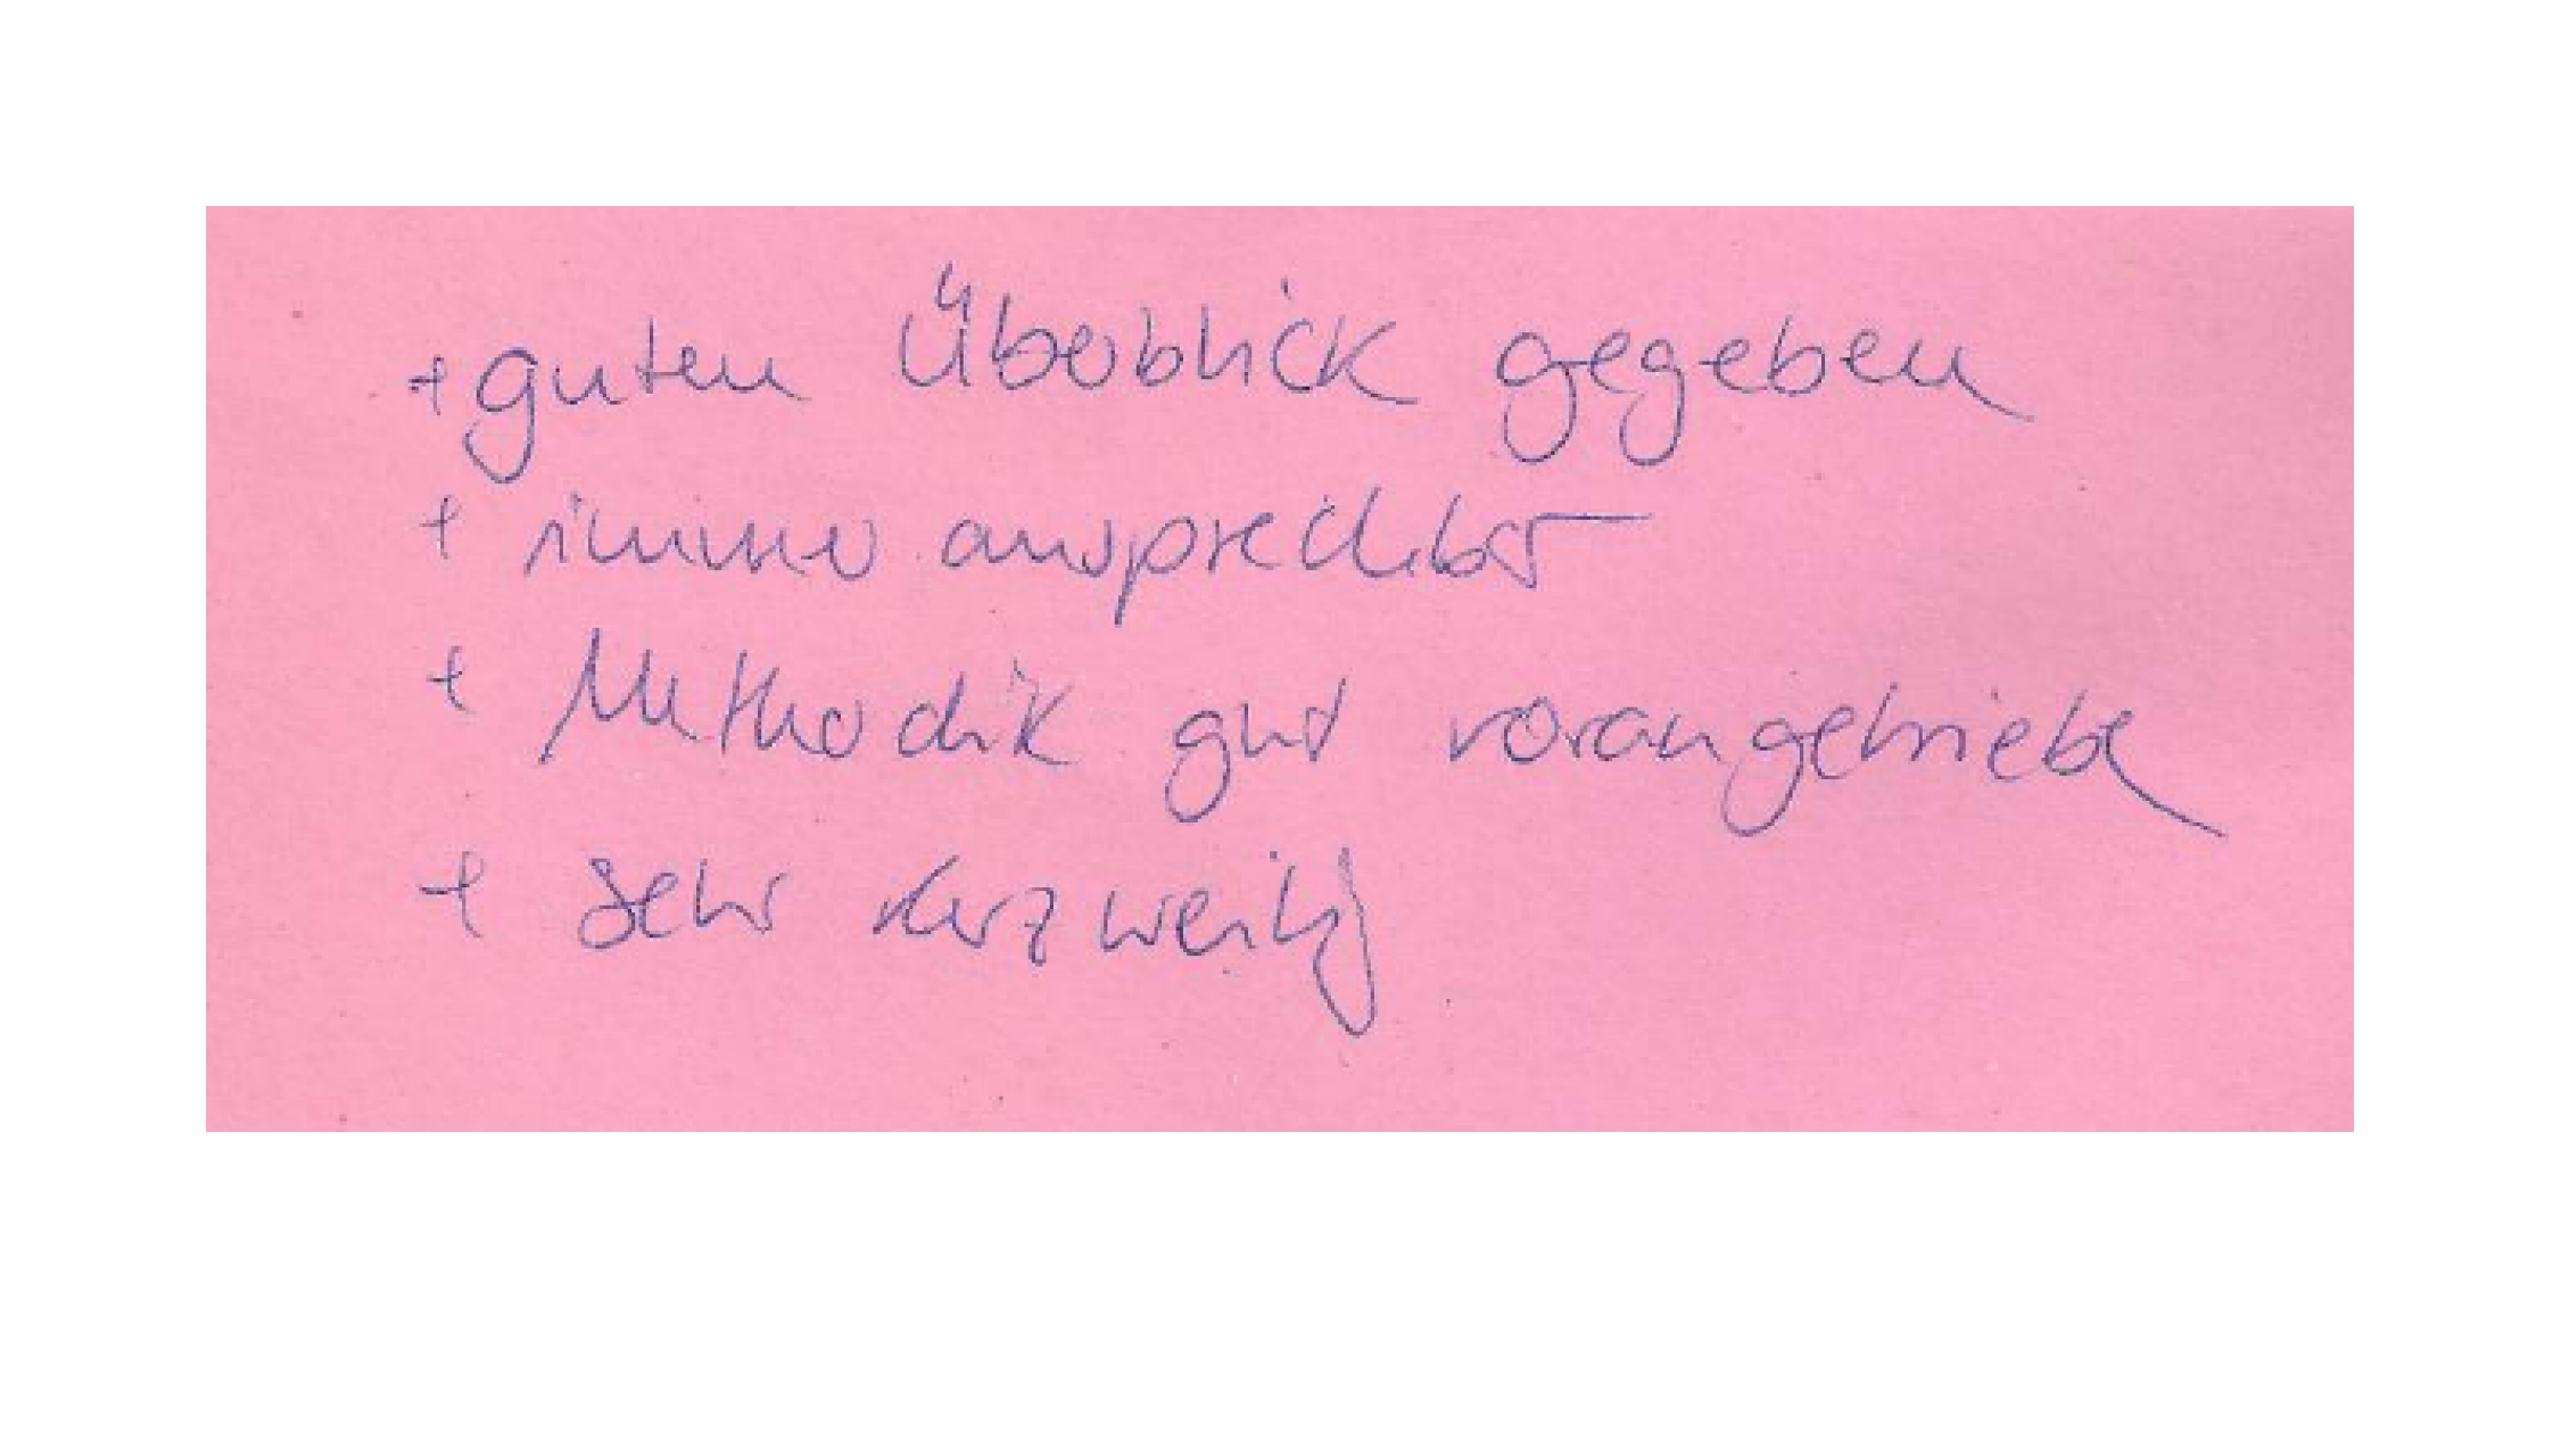 + guten Überblick gegeben
+ immer ansprechbar
+ Methodik gut vorangetrieben
+ sehr kurzweilig